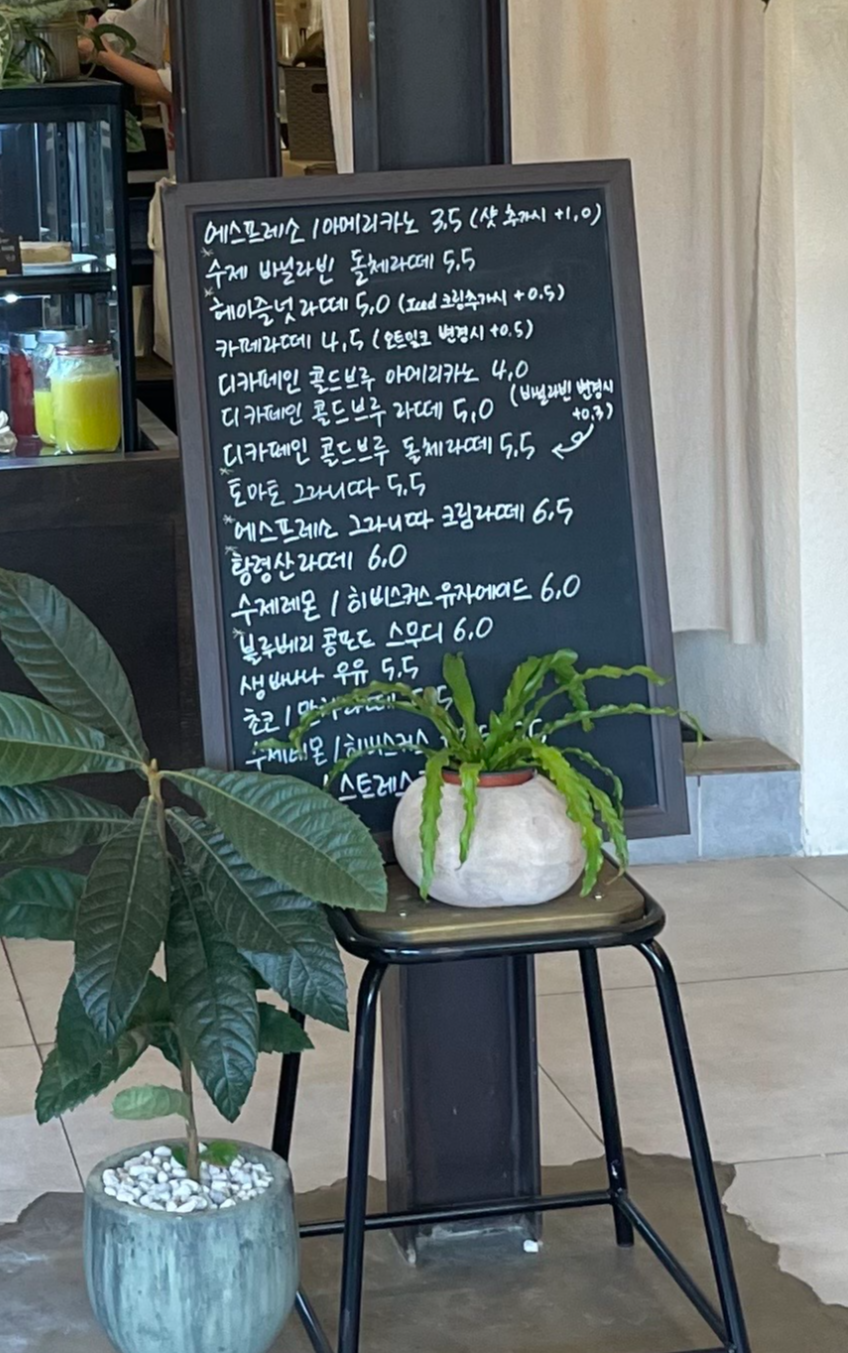 에스프레소 / 아메리카노 3.5 (샷 추가시 +1.0)
*수제 바닐라빈 돌체라떼 5.5
*헤이즐넛 라떼 5.0 (Iced 크림추가시 +0.5)
카페라떼 4.5 (오트밀크 변경시 +0.5)
디카페인 콜드브루 아메리카노 4.0
디카페인 콜드브루 라떼 5.0 (바닐라빈 변경시
+0.3)
디카페인 콜드브루 돌체라떼 5.5
*토마토 그라니따 5.5
*에스프레소 그라니따 크림라떼 6.5
*황령산라떼 6.0
수제레몬 / 히비스커스 유자에이드 6.0
*블루베리 콩포트 스무디 6.0
생 바나나 우유 5.5
초코 /
수제레몬 / 히비스커스
/ 스트레스